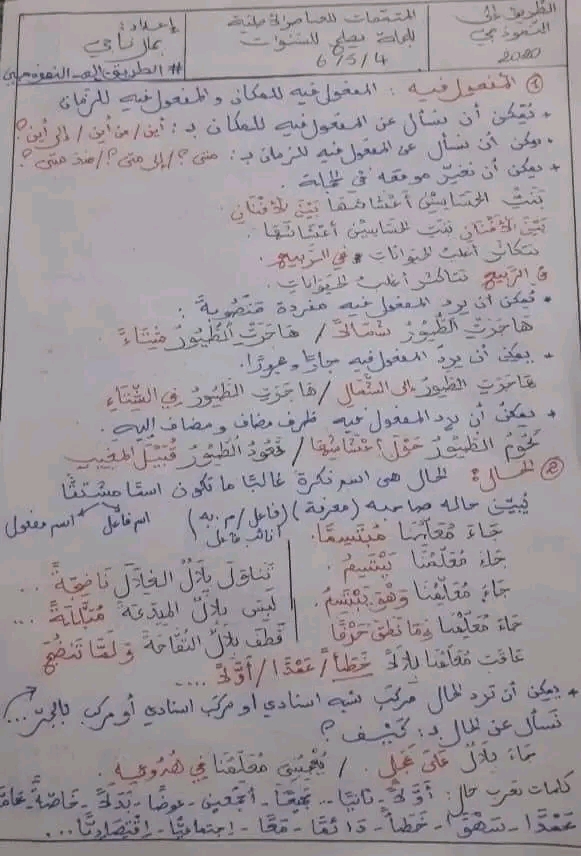 الطريق إلى
النموذجي
2020
المتممات للعناصر الإضافية
للجملة يصلح للسنوات
6/5/4
إعداد:
بلال ناجي
# الطريق_إلى_النموذجي
① المفعول فيه: المفعول فيه للمكان والمفعول فيه للزمان
• يُمكن أن نسأل عن المفعول فيه للمكان بـ: أين/من أين/إلى أين؟
• يمكن أن نسأل عن المفعول فيه للزمان بـ: متى؟/إلى متى؟/منذ متى؟
• يمكن أن نغيّر موقعه في الجملة.
بَنَتْ الحَسَاسِينُ أَعْشَاشَهَا بَيْنَ الأَفْنَانِ.
بَيْنَ الأَفْنَانِ بَنَتِ الحَسَاسِينُ أَعْشَاشَهَا.
تتكاثر أغلبُ الحيوانات في الرّبيع.
في الرّبيع تتكاثرُ أغلبُ الحيوانات.
• يُمكن أن يرد المفعول فيه مفردة مَنْصُوبةً:
هَاجَرَتْ الطُّيُورُ شَمَالاً / هَاجَرَتْ الطُّيُورُ شِتَاءً
• يمكن أن يردَ المفعول فيه جارًّا ومجرورًا:
هَاجَرَتِ الطّيورُ إلى الشّمالِ / هَاجَرَتِ الطّيُورُ في الشِّتَاءِ
• يمكن أن يرد المفعول فيه ظرف مضاف ومضاف إليه.
تَحُومُ الطُّيُورُ حَوْلَ أَعْشَاشِهَا / تَعُودُ الطّيُورُ قُبَيْلَ المغيب
② الحال: الحال هي اسم نكرة غالبًا ما تكون اسمًا مشتقًّا
يُبيّن حالة صاحبه (معرفة) (فاعل/م. به/ اسم فاعل اسم مفعول
نائب فاعل)
جَاءَ مُعَلِّمُنَا مُبْتَسِمًا.
جَاءَ مُعَلِّمُنَا يَبْتَسِمُ. تَنَاوَلَ بِلاَلُ الغِلاَلَ نَاضِجَةً ...
جَاءَ مُعَلِّمُنَا وَهْوَ يَبْتَسِمُ. لَبِسَ بِلاَلُ المِيدَعَةَ مُبَلَّلَةً ...
جَاءَ مُعَلِّمُنَا وما نَطَقَ حَرْفًا قَطَفَ بِلاَلُ التُّفَّاحَةَ وَلَمَّا تَنْضَجْ
عَاقَبَ مُعَلِّمُنَا بِلاَلاً خَطَأً / عَمْدًا / أَوَّلاً ....
• يمكن أن ترد الحال مركّب شبه إسنادي أو مركب إسنادي أو مركب بالجرّ...
نَسأل عن الحال بـ: كَيْفَ؟
جَاءَ بِلاَلُ عَلَى عَجَلٍ. / يُعْجِبُنِي مُعَلِّمُنَا في هُدُوئِهِ.
كلمات تعرب حال: أَوّلاً - ثانيًا... جميعًا - أجمعين - عوضًا - بدلاً - خاصّةً - عامّة
عَمْدًا - سَهْوًا - خَطَأً - دَائمًا - مَعًا - اجتماعيًّا - اقتصاديًّا...